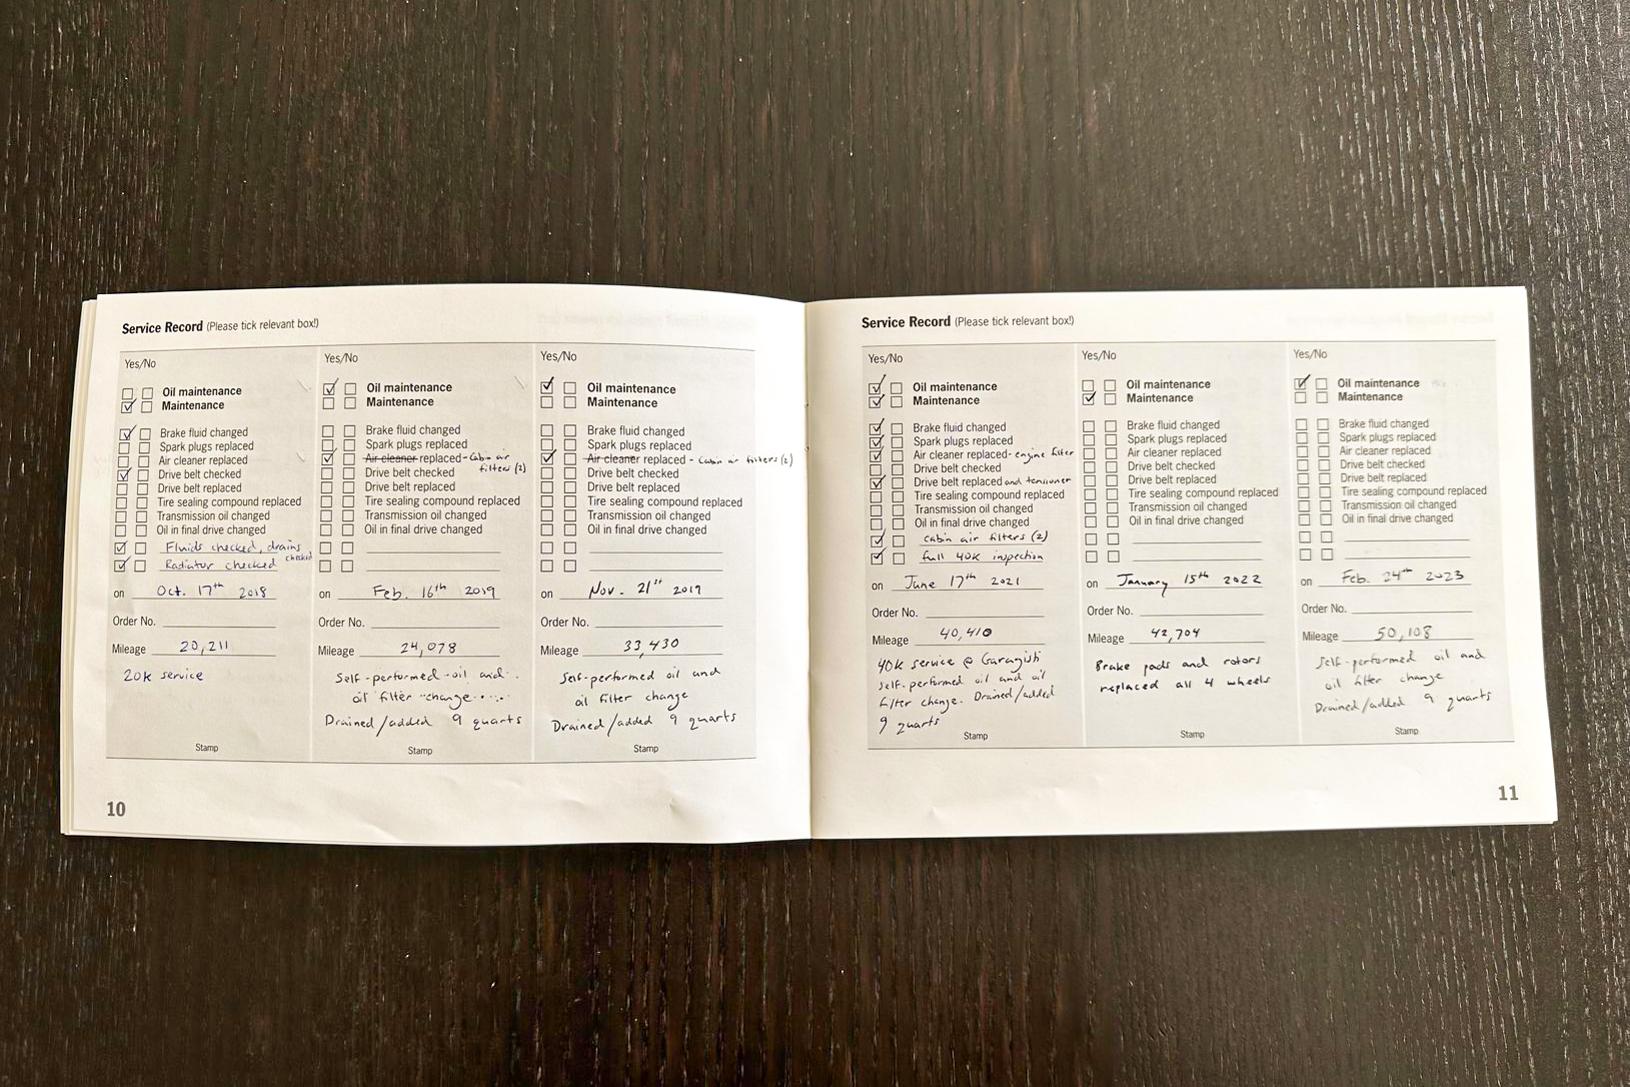 Service Record (Please tick relevant box!)
Yes/No
Oil maintenance
Maintenance
Brake fluid changed
Spark plugs replaced
Air cleaner replaced
Drive belt checked
Drive belt replaced
Tire sealing compound replaced
Transmission oil changed
Oil in final drive changed
Fluids checked, drains checked
Radiator checked
on Oct. 17th 2018
Order No.
Mileage 20,211
20k service
Stamp
Yes/No
Oil maintenance
Maintenance
Brake fluid changed
Spark plugs replaced
Air cleaner replaced - Cabin air
filters (2)
Drive belt checked
Drive belt replaced
Tire sealing compound replaced
Transmission oil changed
Oil in final drive changed
on Feb. 16th 2019
Order No.
Mileage 24,078
Self-performed oil and
oil filter change
Drained/added 9 quarts
Stamp
Yes/No
Oil maintenance
Maintenance
Brake fluid changed
Spark plugs replaced
Air cleaner replaced - Cabin air filters (2)
Drive belt checked
Drive belt replaced
Tire sealing compound replaced
Transmission oil changed
Oil in final drive changed
on Nov. 21st 2019
Order No.
Mileage 33,430
Self-performed oil and
oil filter change
Drained/added 9 quarts
Stamp
10
Service Record (Please tick relevant box!)
Yes/No
Oil maintenance
Maintenance
Brake fluid changed
Spark plugs replaced
Air cleaner replaced - engine filter
Drive belt checked
Drive belt replaced and tensioner
Tire sealing compound replaced
Transmission oil changed
Oil in final drive changed
cabin air filters (2)
full 40k inspection
on June 17th 2021
Order No.
Mileage 40,410
40k service @ Garagisti
Self-performed oil and oil
filter change. Drained/added
9 quarts
Stamp
Yes/No
Oil maintenance
Maintenance
Brake fluid changed
Spark plugs replaced
Air cleaner replaced
Drive belt checked
Drive belt replaced
Tire sealing compound replaced
Transmission oil changed
Oil in final drive changed
on January 15th 2022
Order No.
Mileage 42,704
Brake pads and rotors
replaced all 4 wheels
Stamp
Yes/No
Oil maintenance
Maintenance
Brake fluid changed
Spark plugs replaced
Air cleaner replaced
Drive belt checked
Drive belt replaced
Tire sealing compound replaced
Transmission oil changed
Oil in final drive changed
on Feb. 24th 2023
Order No.
Mileage 50,108
Self-performed oil and
oil filter change
Drained/added 9 quarts
Stamp
11